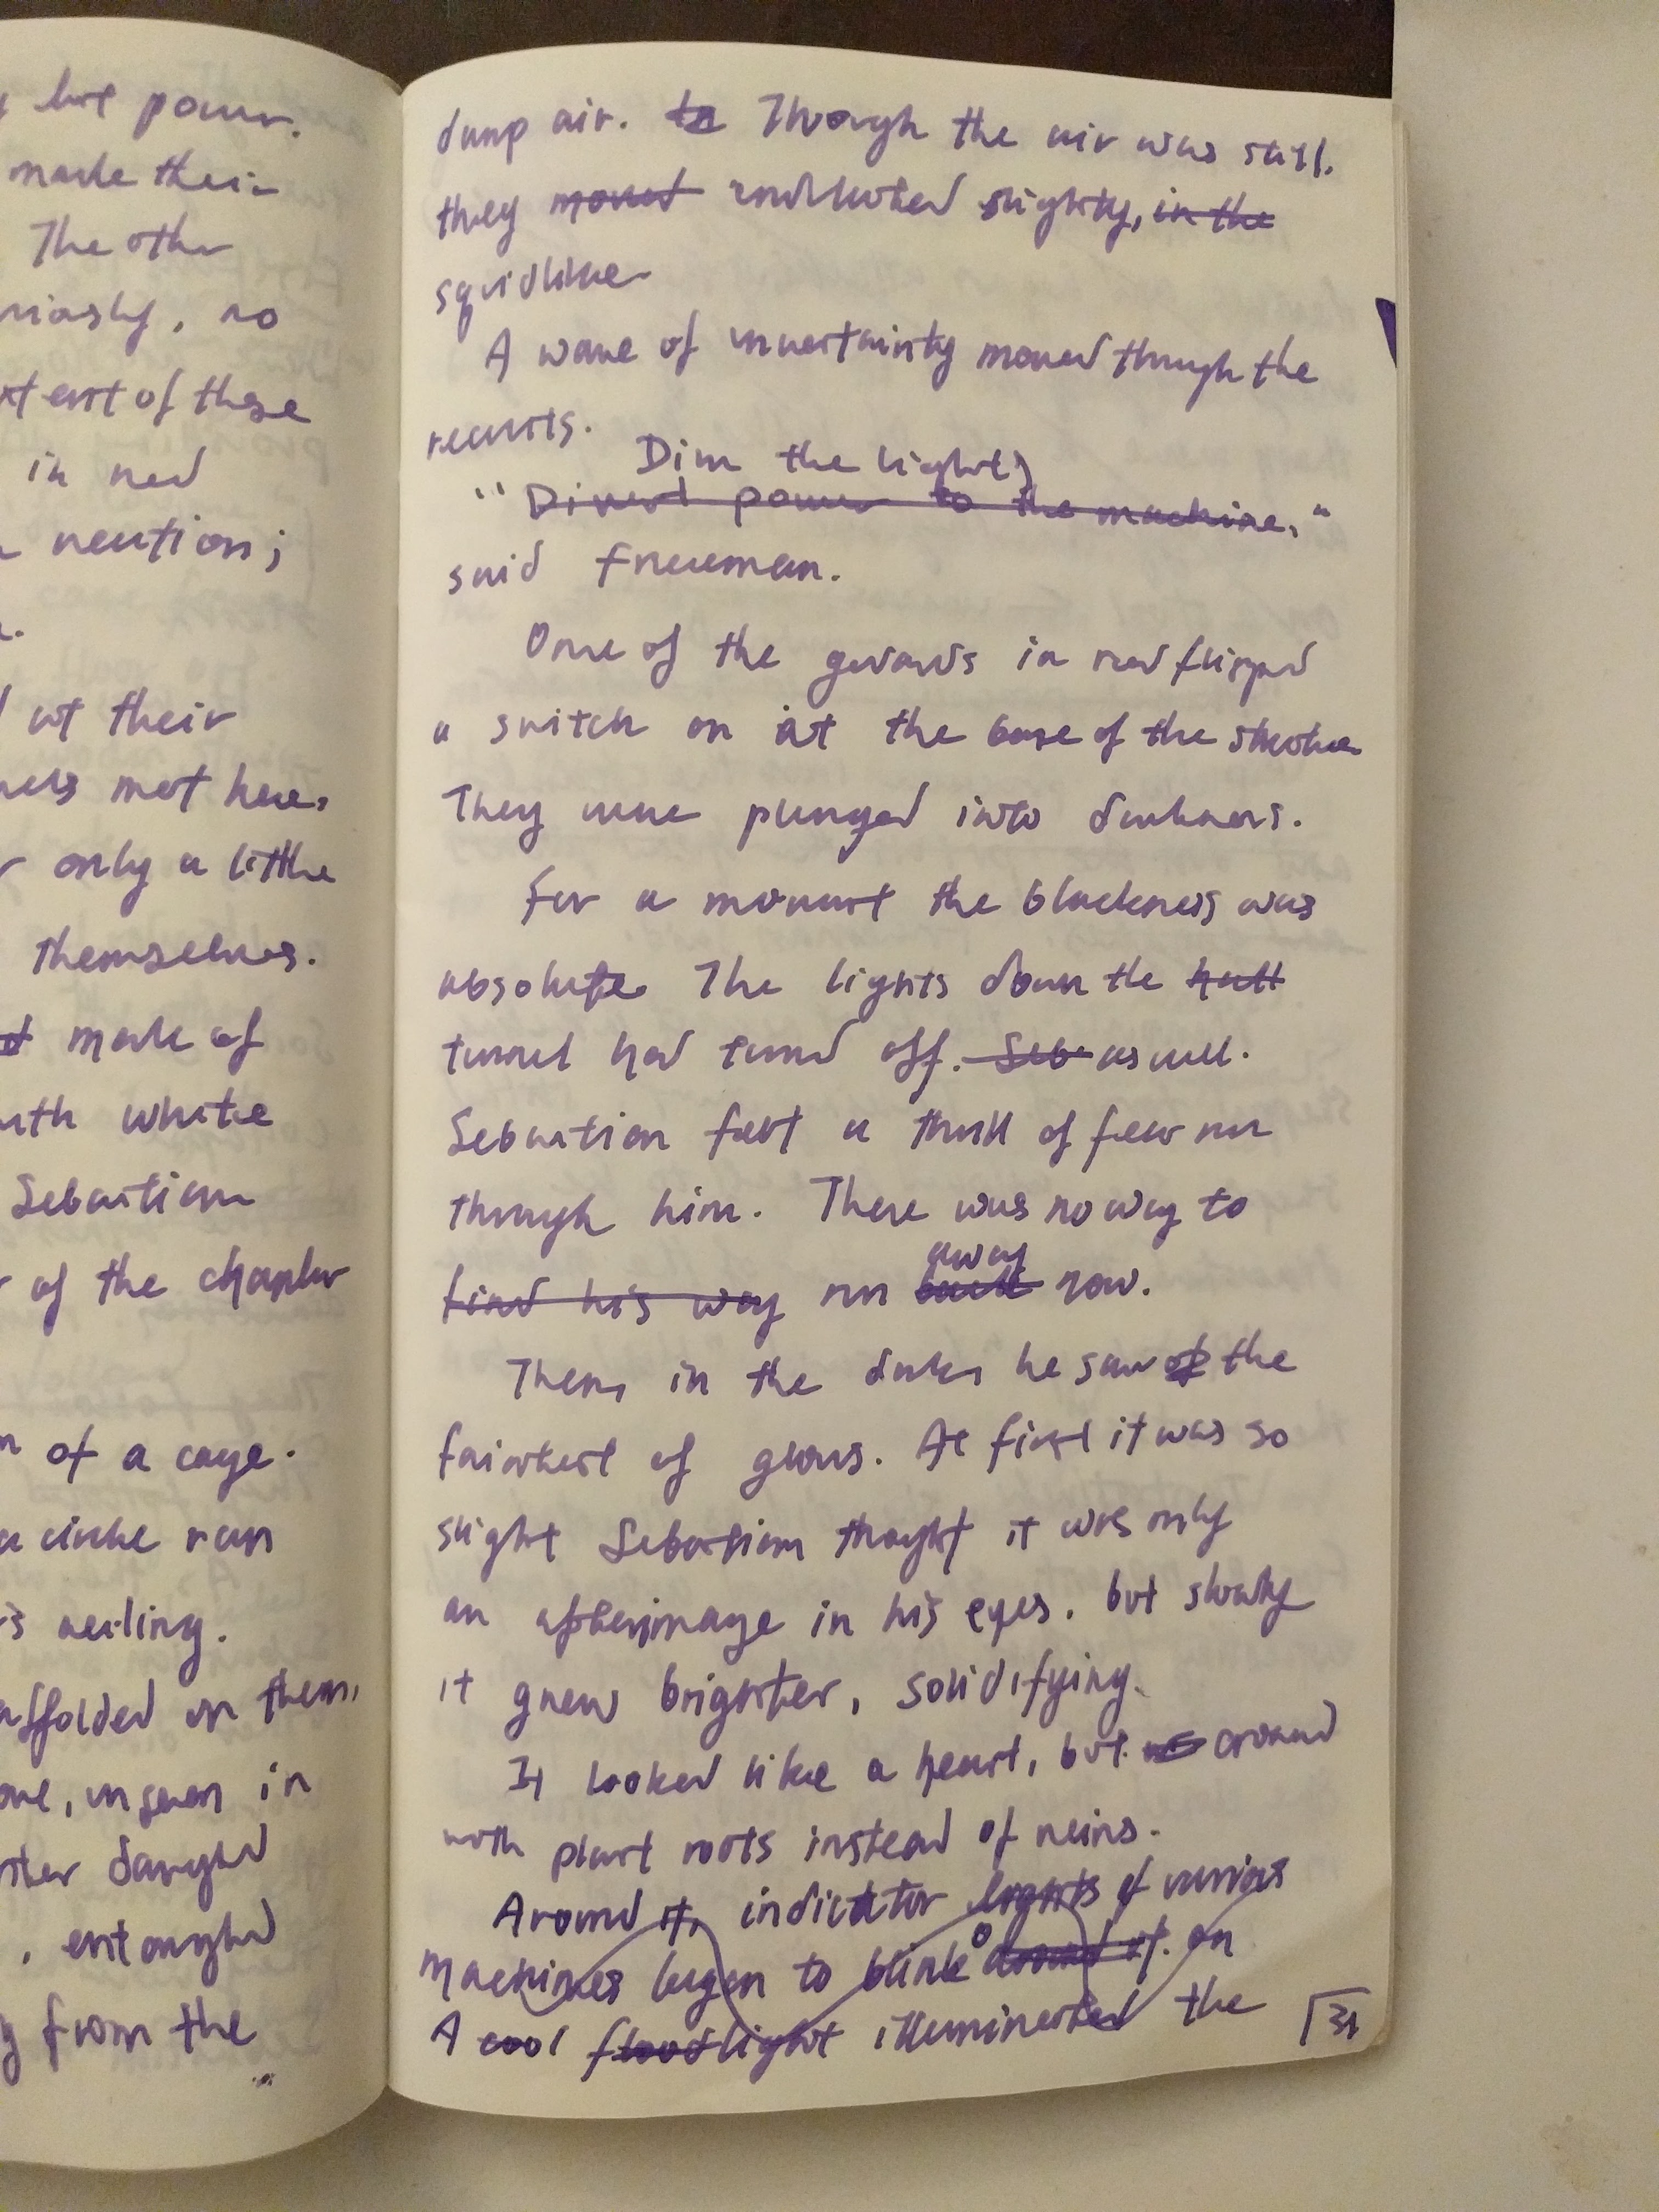 lost power.
made their
The other
no
extent of these
in red
reaction;
at their
met here,
only a little
themselves.
made of
with white
Sebastian
of the chamber
of a cage.
a circle ran
ceiling.
scaffolded on them,
unseen in
danged
, entangled
from the
damp air. to Though the air was still,
they moved undulated slightly, in the
squidlike
A wave of uncertainty moved through the
recruits.
Dim the lights,
"Divert power to the machine,"
said Freeman.
One of the guards in red flipped
a switch on at the base of the
They were plunged into darkness.
For a moment the blackness was
absolute. The lights down the hall
tunnel had turned off. Seb as well.
Sebastian felt a thrill of fear run
through him. There was no way to
away
find his way run back now.
Then, in the dark, he saw of the
faintest of glows. At first it was so
slight Sebastian thought it was only
an afterimage in his eyes. but slowly
it grew brighter, solidifying.
It looked like a heart, but around
with plant roots instead of veins.
Around it, indicator lights of various
machines began to blink around it. on
A cool floodlight illuminated the
31